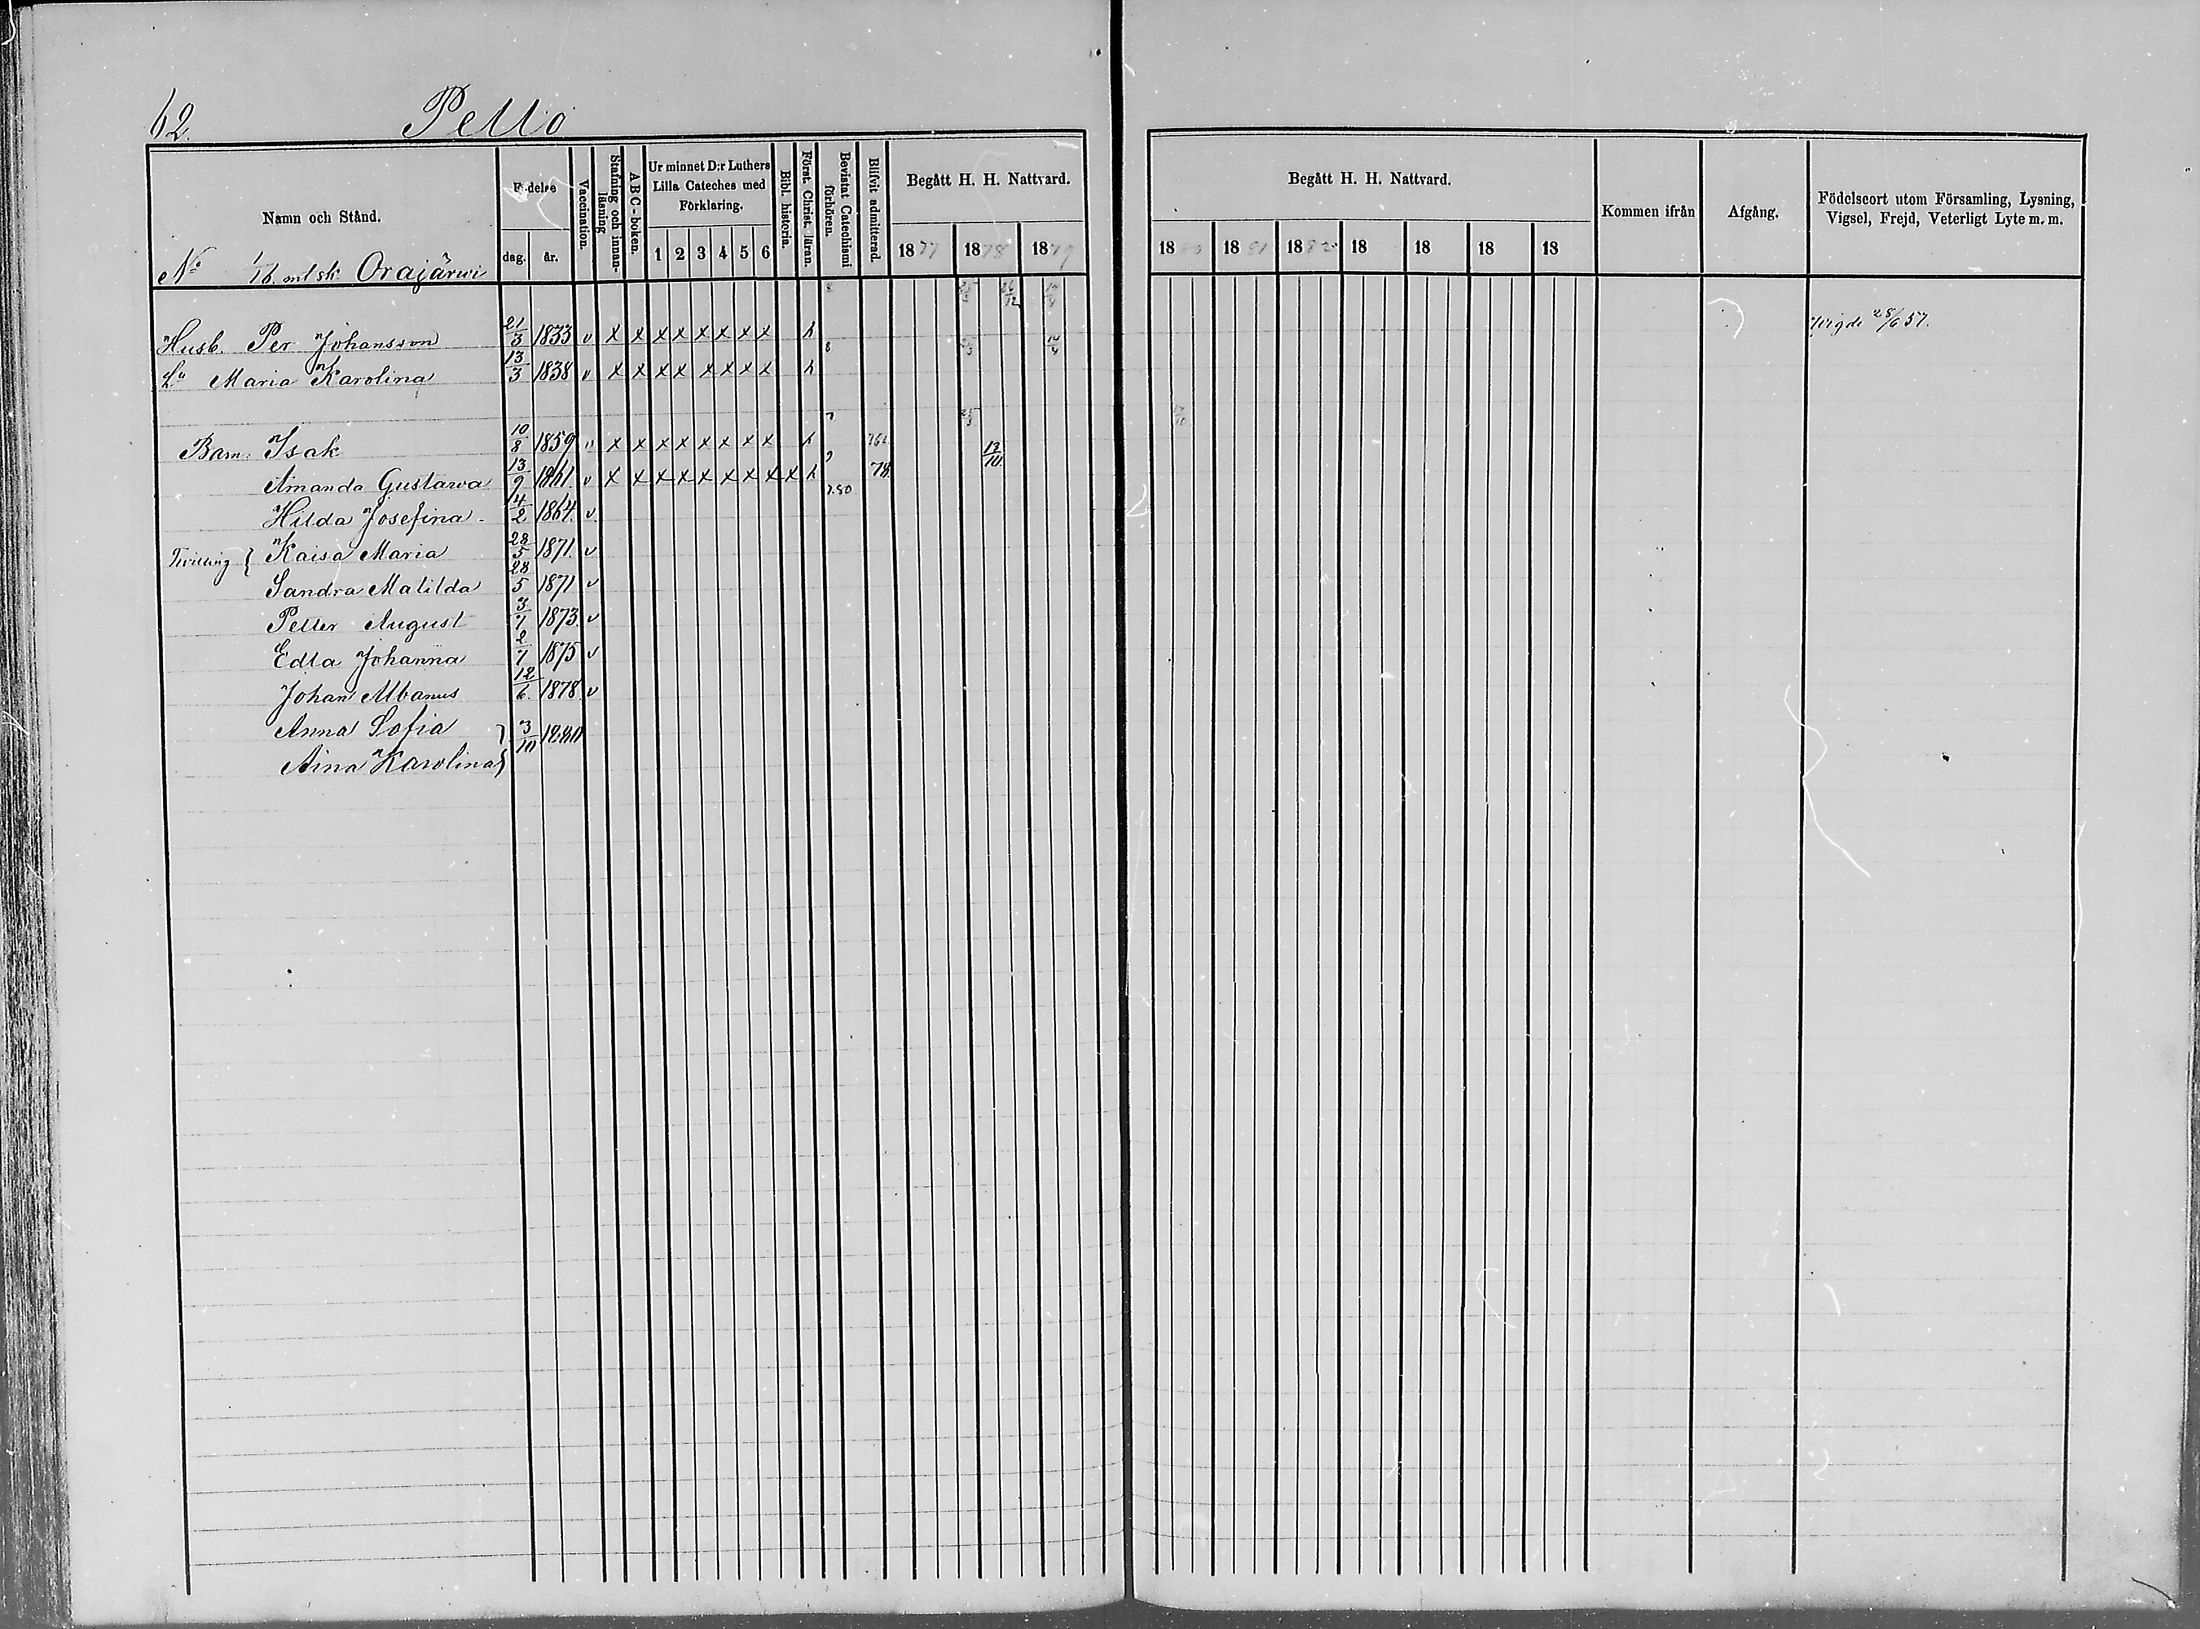 62. Pello
Namn och Stånd.
Födelse
dag. år.
Vaccination.
Stafning och innanläsning
ABC-boken.
Ur minnet D:r Luthers Lilla Cateches med Förklaring.
1 2 3 4 5 6
Bibl. historia.
Först. Christ. läran.
Bevistat Catechismi förhören.
Blifvit admitterad.
Begått H. H. Nattvard.
1877 1878 1879
Begått H. H. Nattvard.
1880 1881 1882 18 18 18 18
Kommen ifrån
Afgång.
Födelseort utom Församling, Lysning, Vigsel, Frejd, Veterligt Lyte m. m.
No 1/16 mtl sk. Orajärwi
Husb. Per Johansson 21/3 1833 v x x x x x x x x h 8 Vigde 28/6 57.
Hu Maria Karolina 13/3 1838 v x x x x x x x x h 8
Barn: Isak 10/8 1859 v x x x x x x x x h 7
Amanda Gustawa 13/9 1861. v x x x x x x x x x h 9 78. 12/10
Hilda Josefina 14/2 1864. v
Tvilling { Kaisa Maria 28/5 1871. v
Sandra Matilda 28/5 1871 v
Petter August 3/7 1873. v
Edla Johanna 2/7 1875 v
Johan Albanus 12/6. 1878. v
Anna Sofia } 3/10 1880
Aina Karolina }